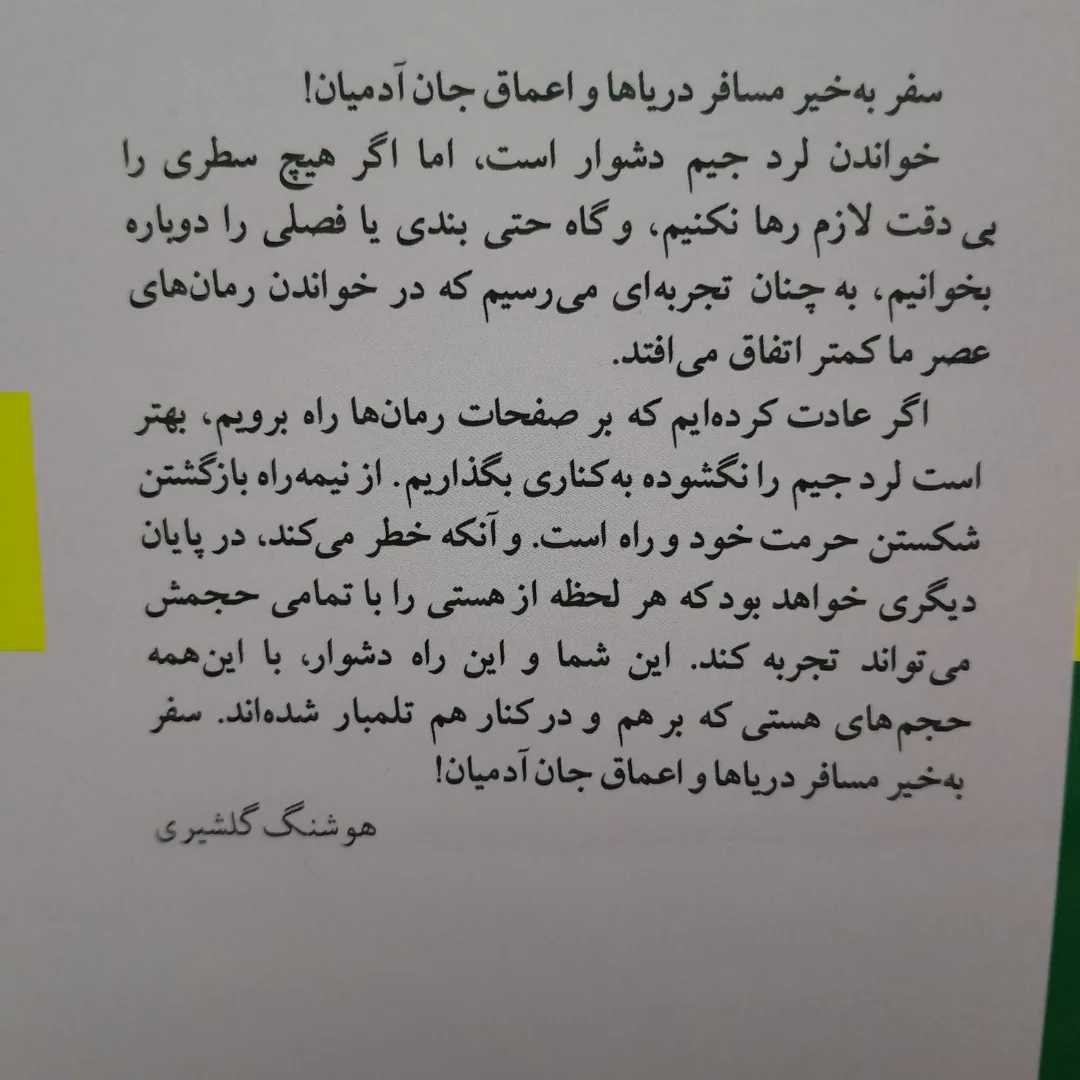 سفر به‌خیر مسافر دریاها و اعماق جان آدمیان!
خواندن لرد جیم دشوار است، اما اگر هیچ سطری را
بی دقت لازم رها نکنیم، و گاه حتی بندی یا فصلی را دوباره
بخوانیم، به چنان تجربه‌ای می‌رسیم که در خواندن رمان‌های
عصر ما کمتر اتفاق می‌افتد.
اگر عادت کرده‌ایم که بر صفحات رمان‌ها راه برویم، بهتر
است لرد جیم را نگشوده به کناری بگذاریم. از نیمه‌راه بازگشتن
شکستن حرمت خود و راه است. و آنکه خطر می‌کند، در پایان
دیگری خواهد بود که هر لحظه از هستی را با تمامی حجمش
می‌تواند تجربه کند. این شما و این راه دشوار، با این‌همه
حجم‌های هستی که بر هم و در کنار هم تلمبار شده‌اند. سفر
به‌خیر مسافر دریاها و اعماق جان آدمیان!
هوشنگ گلشیری